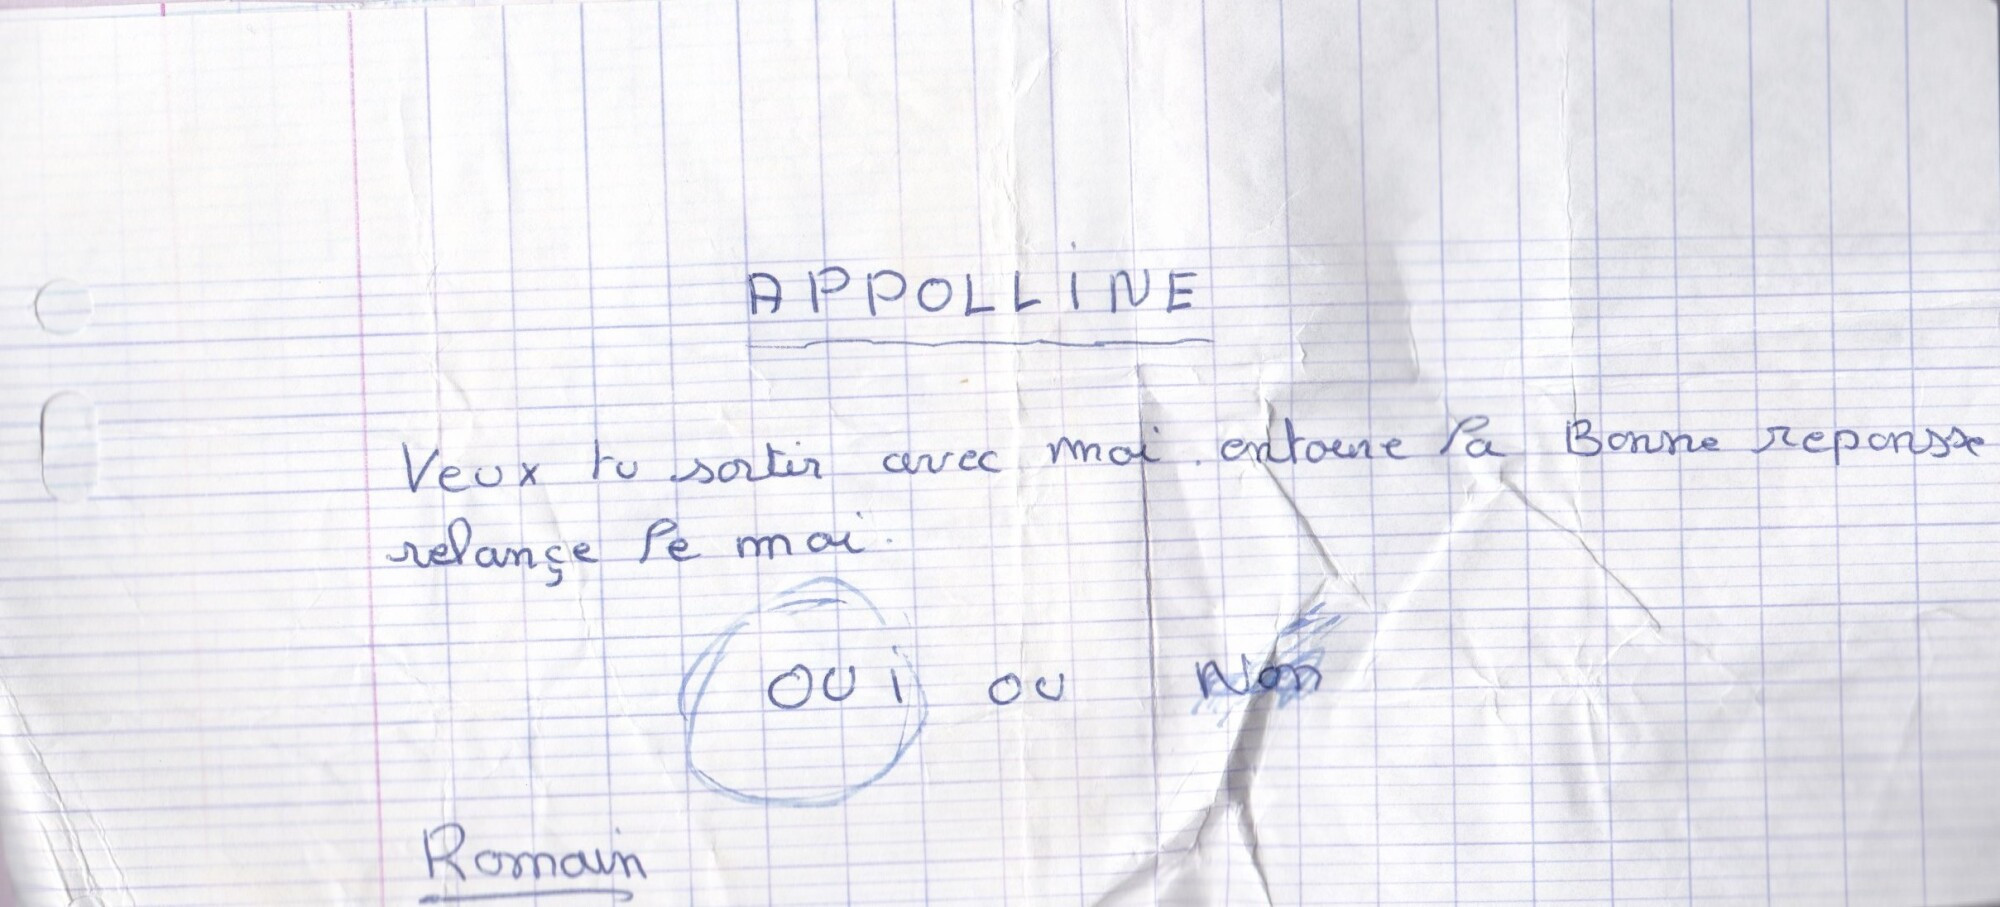 APPOLLINE
Veux tu sortir avec moi. entoure la Bonne reponsse
relançe le moi.
OUi ou Non
Romain